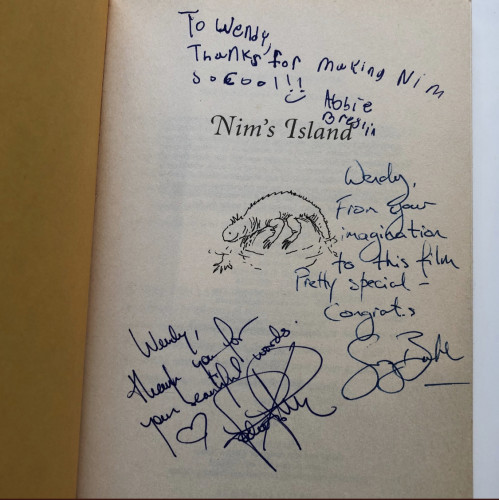 To Wendy,
Thanks for making Nim
so cool!!!
Abbie
Breslin
Nim's Island
Wendy,
From your
imagination
to this film
Pretty special -
Congrats
Wendy,
thank you for
your beautiful words.